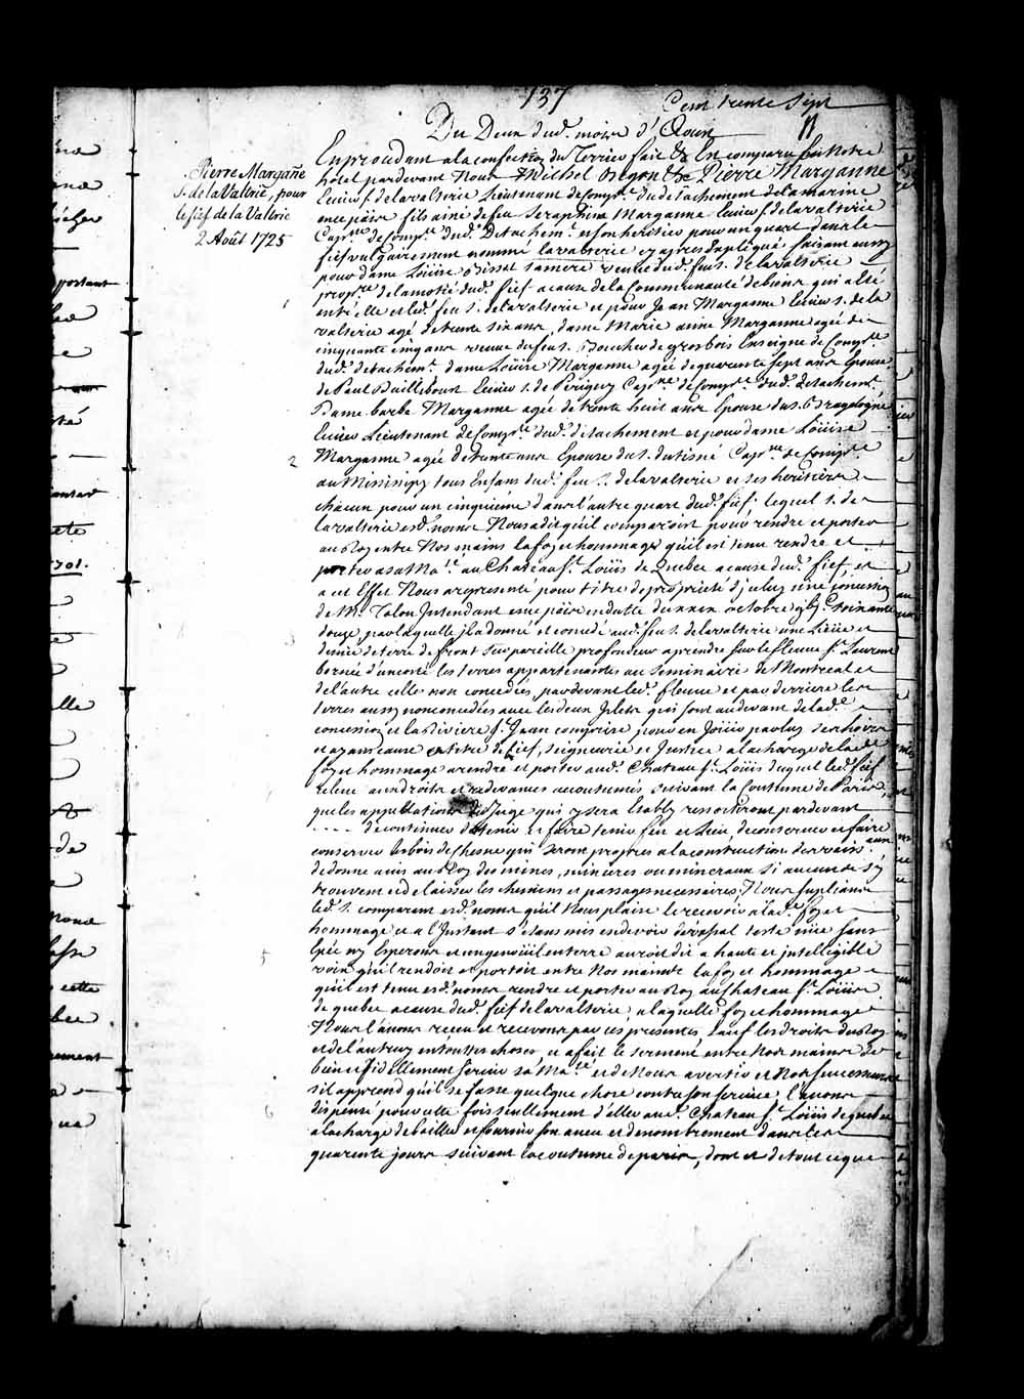 137 Cent trente Sept
Du Deux dud. mois d'Aoust
Pierre Margañe
S. de la Valtrie, pour
le fief de la Valtrie
2 Août 1725
En procedant a la confection du Terrier fait &c Est comparu en Notre
hotel pardevant Nous Michel Begon &c Pierre Marganne
Ecuier S. de lavalterie Lieutenant de Comp.ie du detachement de la marine
en ce païs fils ainé de feu Seraphin Marganne Ecuier S. de lavalterie
Cap.ne de Comp.ie dud. Detachem.t et son heritier pour un quart dans le
fief vulgairement nommé lavalterie cy apres Expliqué faisant aussy
pour dame Loüise Bissot sa mere veuve dud. feu S. de lavalterie
propr.re de la moitié dud. fief a cause de la Communauté de biens qui a eté
entre elle et led. feu S. de lavalterie et pour Jean Marganne Ecuier S. de la
valterie agé de trente six ans, dame Marie anne Marganne agée de
cinquante cinq ans veuve de feu S. Boucher de grosbois Enseigne de Comp.ie
dud. detachem.t dame Loüise Marganne agée de quarente sept ans Epouse
de Paul Daillebout Ecuier S. de Perigny Cap.ne de Comp.ie dud. detachem.t
Dame barbe Marganne agée de trente huit ans Epouse du S. Bragelogne
Ecuier Lieutenant de Comp.ie dud. detachement et pour dame Loüise
Marganne agée de trente ans Epouse du S. dutisné Cap.ne de Comp.ie
au Missisipy tous Enfans dud. feu S. de lavalterie et ses heritiers
chacun pour un cinquiéme dans l'autre quart dud. fief lequel S. de
lavalterie esd. noms Nous a dit qu'il comparoist pour rendre et porter
au Roy entre Nos mains la foy et hommage qu'il est tenu rendre et
porter a sa Ma.té au Chateau S.t Loüis de Quebec a cause dud. fief et
a cet Effet Nous a representé pour titre de propriété d'jceluy une concession
de M.r Talon Intendant en ce païs en datte du xxix octobre gbj.c soixante
douze par laquelle jl a donné et concedé aud. feu S. de lavalterie une Lieüe et
demie de terre de front sur pareille profondeur a prendre sur le fleuve S.t Laurent
bornée d'un costé les terres appartenantes au seminaire de Montreal et
de l'autre celles non concedées, pardevant led. fleuve et par derriere les
terres aussy non concedées avec les deux Jslets qui sont au devant de lad.
concession et la Riviere S.t Jean comprise pour en Joüir par luy ses hoirs
et ayans cause en titre de fief, seigneurie et Justice a la charge de la
foy et hommage a rendre et porter aud. Chateau S.t Loüis duquel led. fief
releve aux droits et redevances accoutumés suivant la Coutume de Paris,
que les appellations du Juge qui y sera Estably ressortiront pardevant
. . . . de continuer de tenir et faire tenir feu et lieu de conserver et faire
conserver les bois de chesne qui seront propres a la construction des vaiss.aux
de donner avis au Roy des mines, minieres ou mineraux si aucuns s'y
trouvent et de laisser les chemins et passages necessaires; Nous supliant
led. S. comparant esd. noms qu'il Nous plaise le recevoir a lad. foy et
hommage et a l'Instant s'etant mis en devoir de vassal teste nüe sans
Epée ny Eperons et un genouil en terre auroit dit a haute et intelligible
voix qu'il rendoit et portoit entre Nos mains la foy et hommage
qu'il est tenu esd. noms rendre et porter au Roy au Chateau S.t Loüis
de quebec a cause dud. fief de lavalterie a laquelle foy et hommage
Nous l'avons receu et recevons par ces presentes, sauf les droits du Roy
et de l'autruy en toutes choses, et a fait le serment entre Nos mains de
bien et fidellement servir sa Ma.té et de Nous avertir et Nos successeurs
s'il apprend qu'il se fasse quelque chose contre son service l'avons
dispensé pour cette fois seullement d'aller aud. Chateau S.t Loüis de quebec
a la charge de bailler et fournir son aveu et denombrement dans les
quarente jours suivant la coutume de paris, dont et de tout ce que